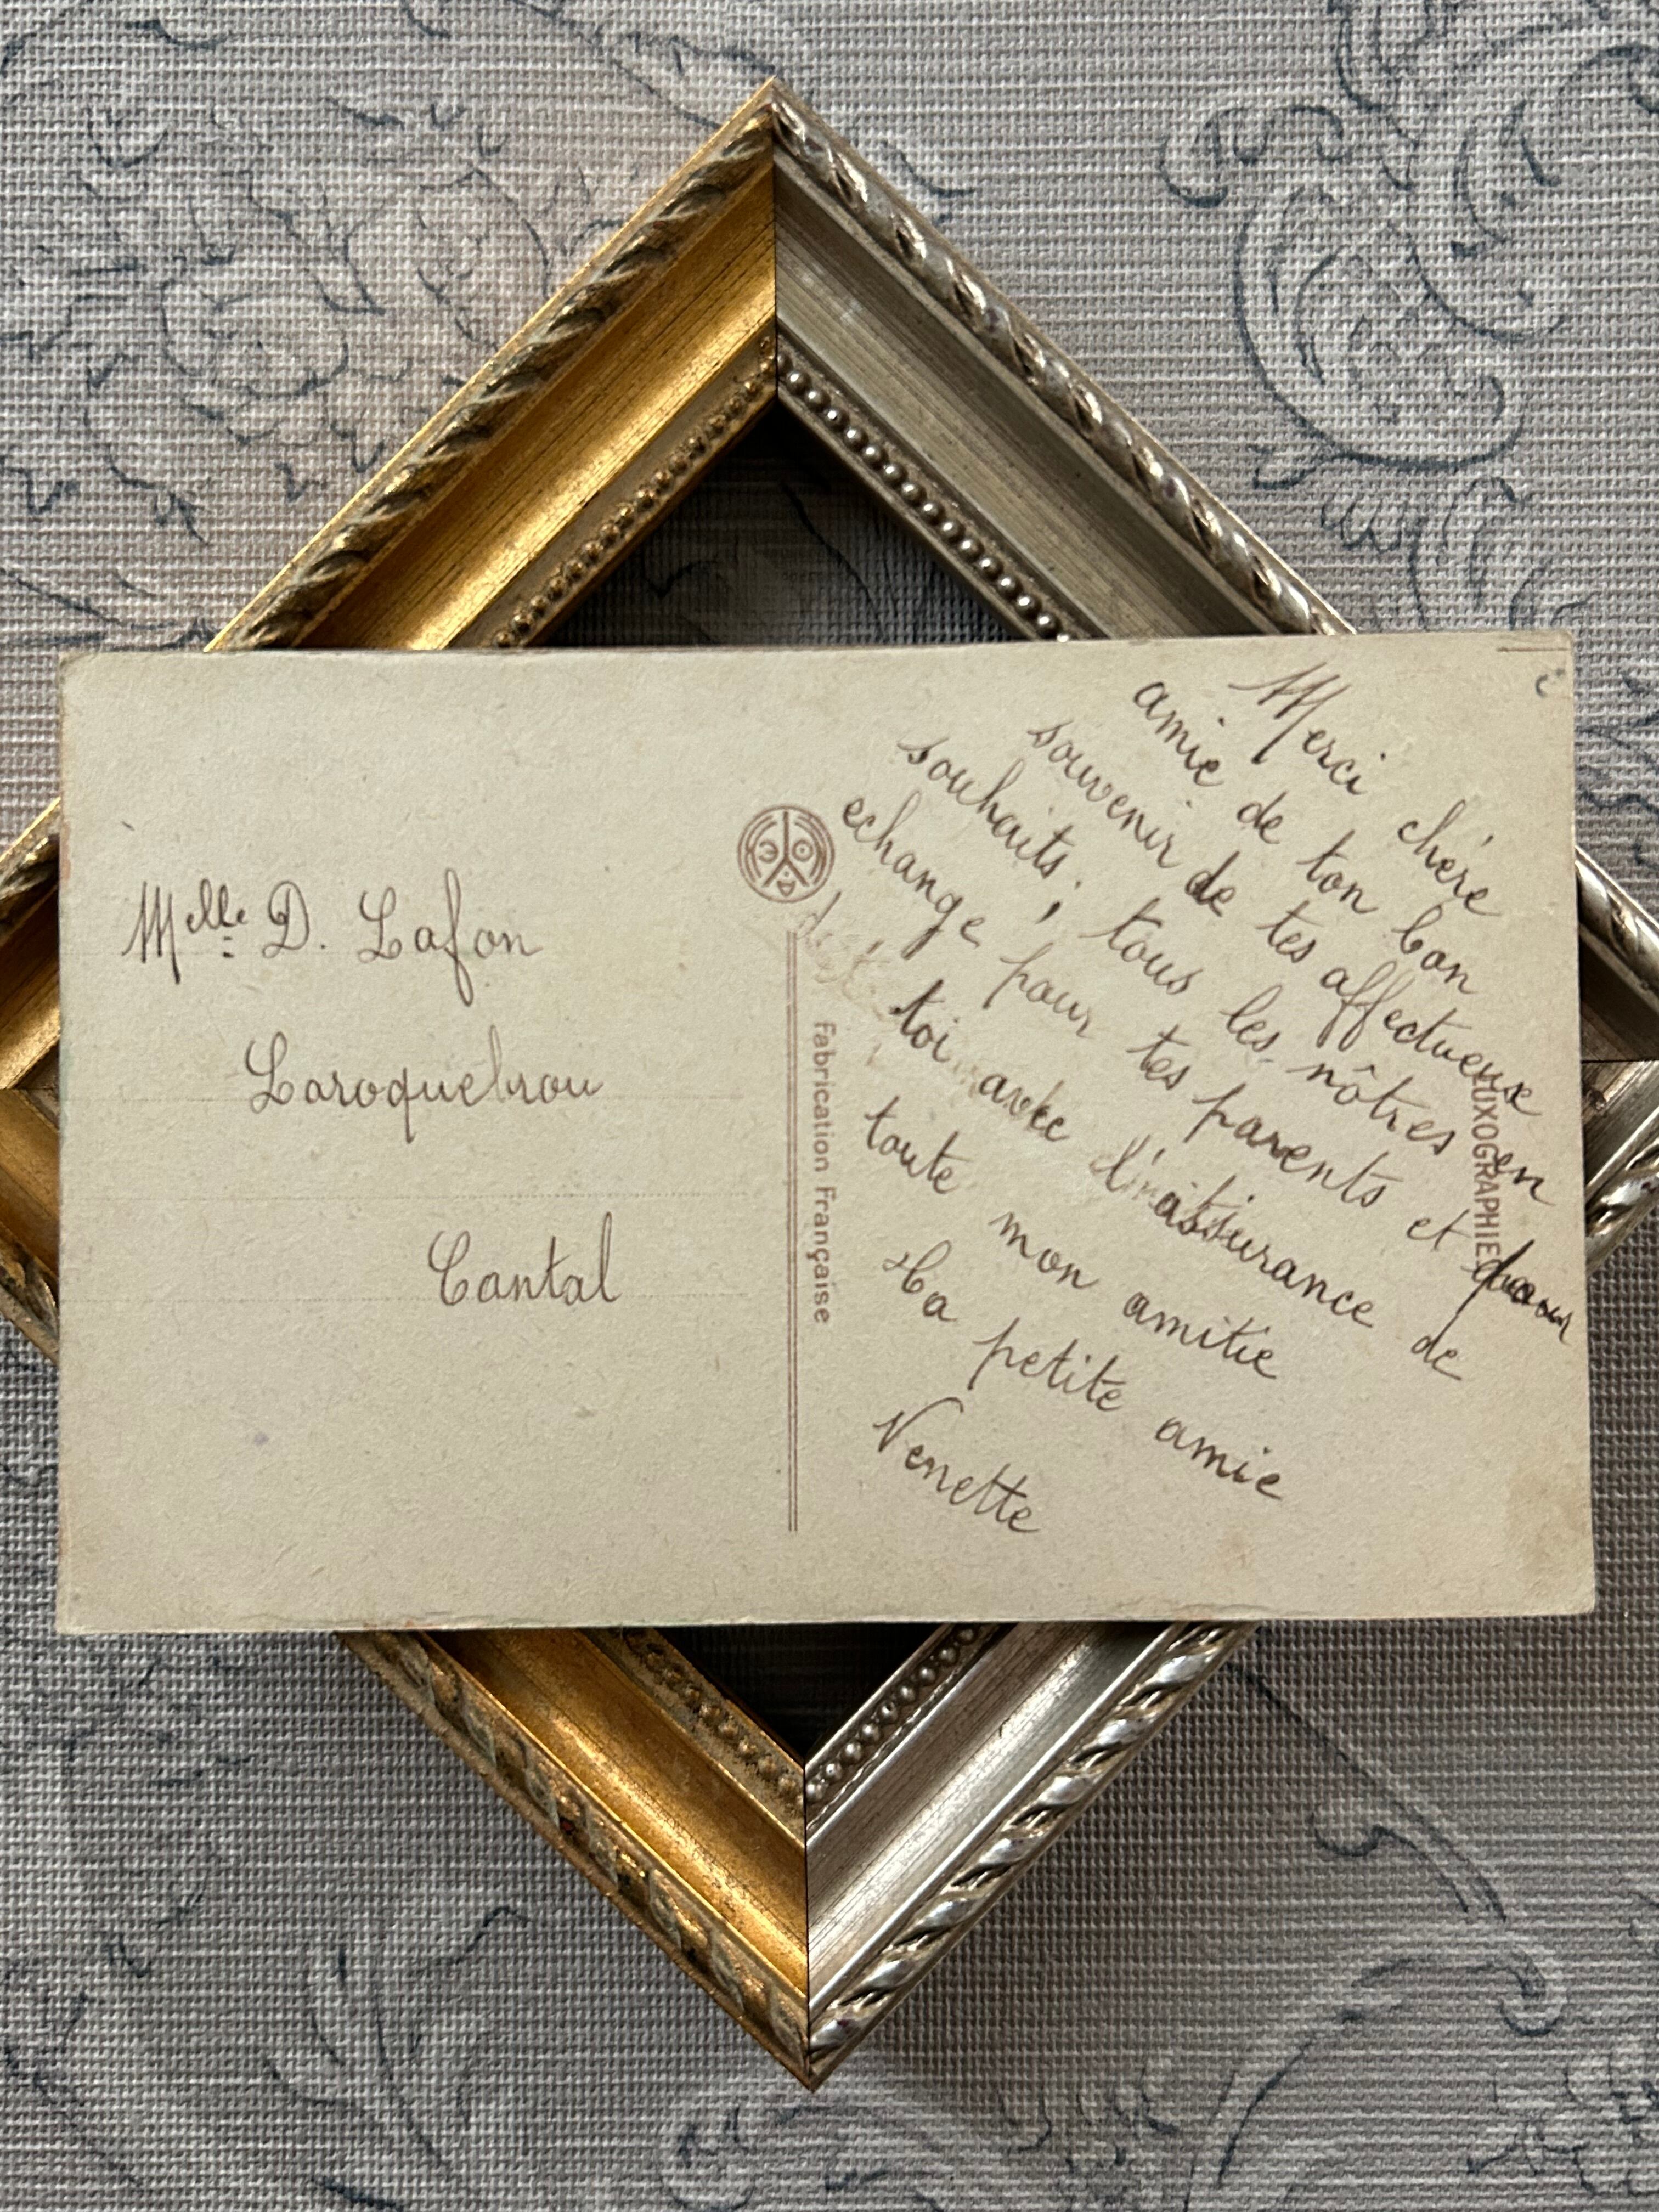 Melle D. Lafon
Laroquebrou
Cantal
Fabrication Française
LUXOGRAPHIE
Merci chère
amie de ton bon
souvenir de tes affectueux
souhaits, tous les nôtres en
echange pour tes parents et pour
toi avec l'assurance de
toute mon amitie
Ta petite amie
Venette